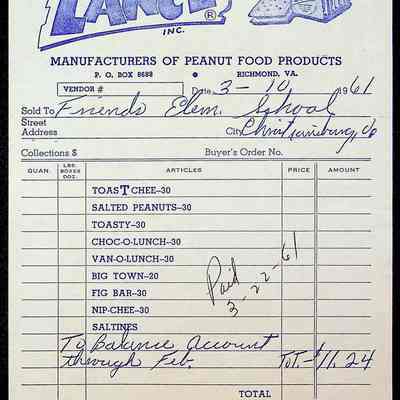 LANCE ®
INC.
MANUFACTURERS OF PEANUT FOOD PRODUCTS
P. O. BOX 8688 • RICHMOND, VA.
VENDOR # Date 3-10 1961
Sold To Friends Elem. School
Street
Address City Christiansburg, Va
Collections $ Buyer's Order No.
QUAN. LBS. BOXES DOZ. ARTICLES PRICE AMOUNT
TOASTCHEE–30
SALTED PEANUTS–30
TOASTY–30
CHOC-O-LUNCH–30
VAN-O-LUNCH–30
BIG TOWN–20
FIG BAR–30
NIP-CHEE–30
SALTINES
Paid
3-22-61
To Balance Account
through Feb. TOT.- $11.24
TOTAL